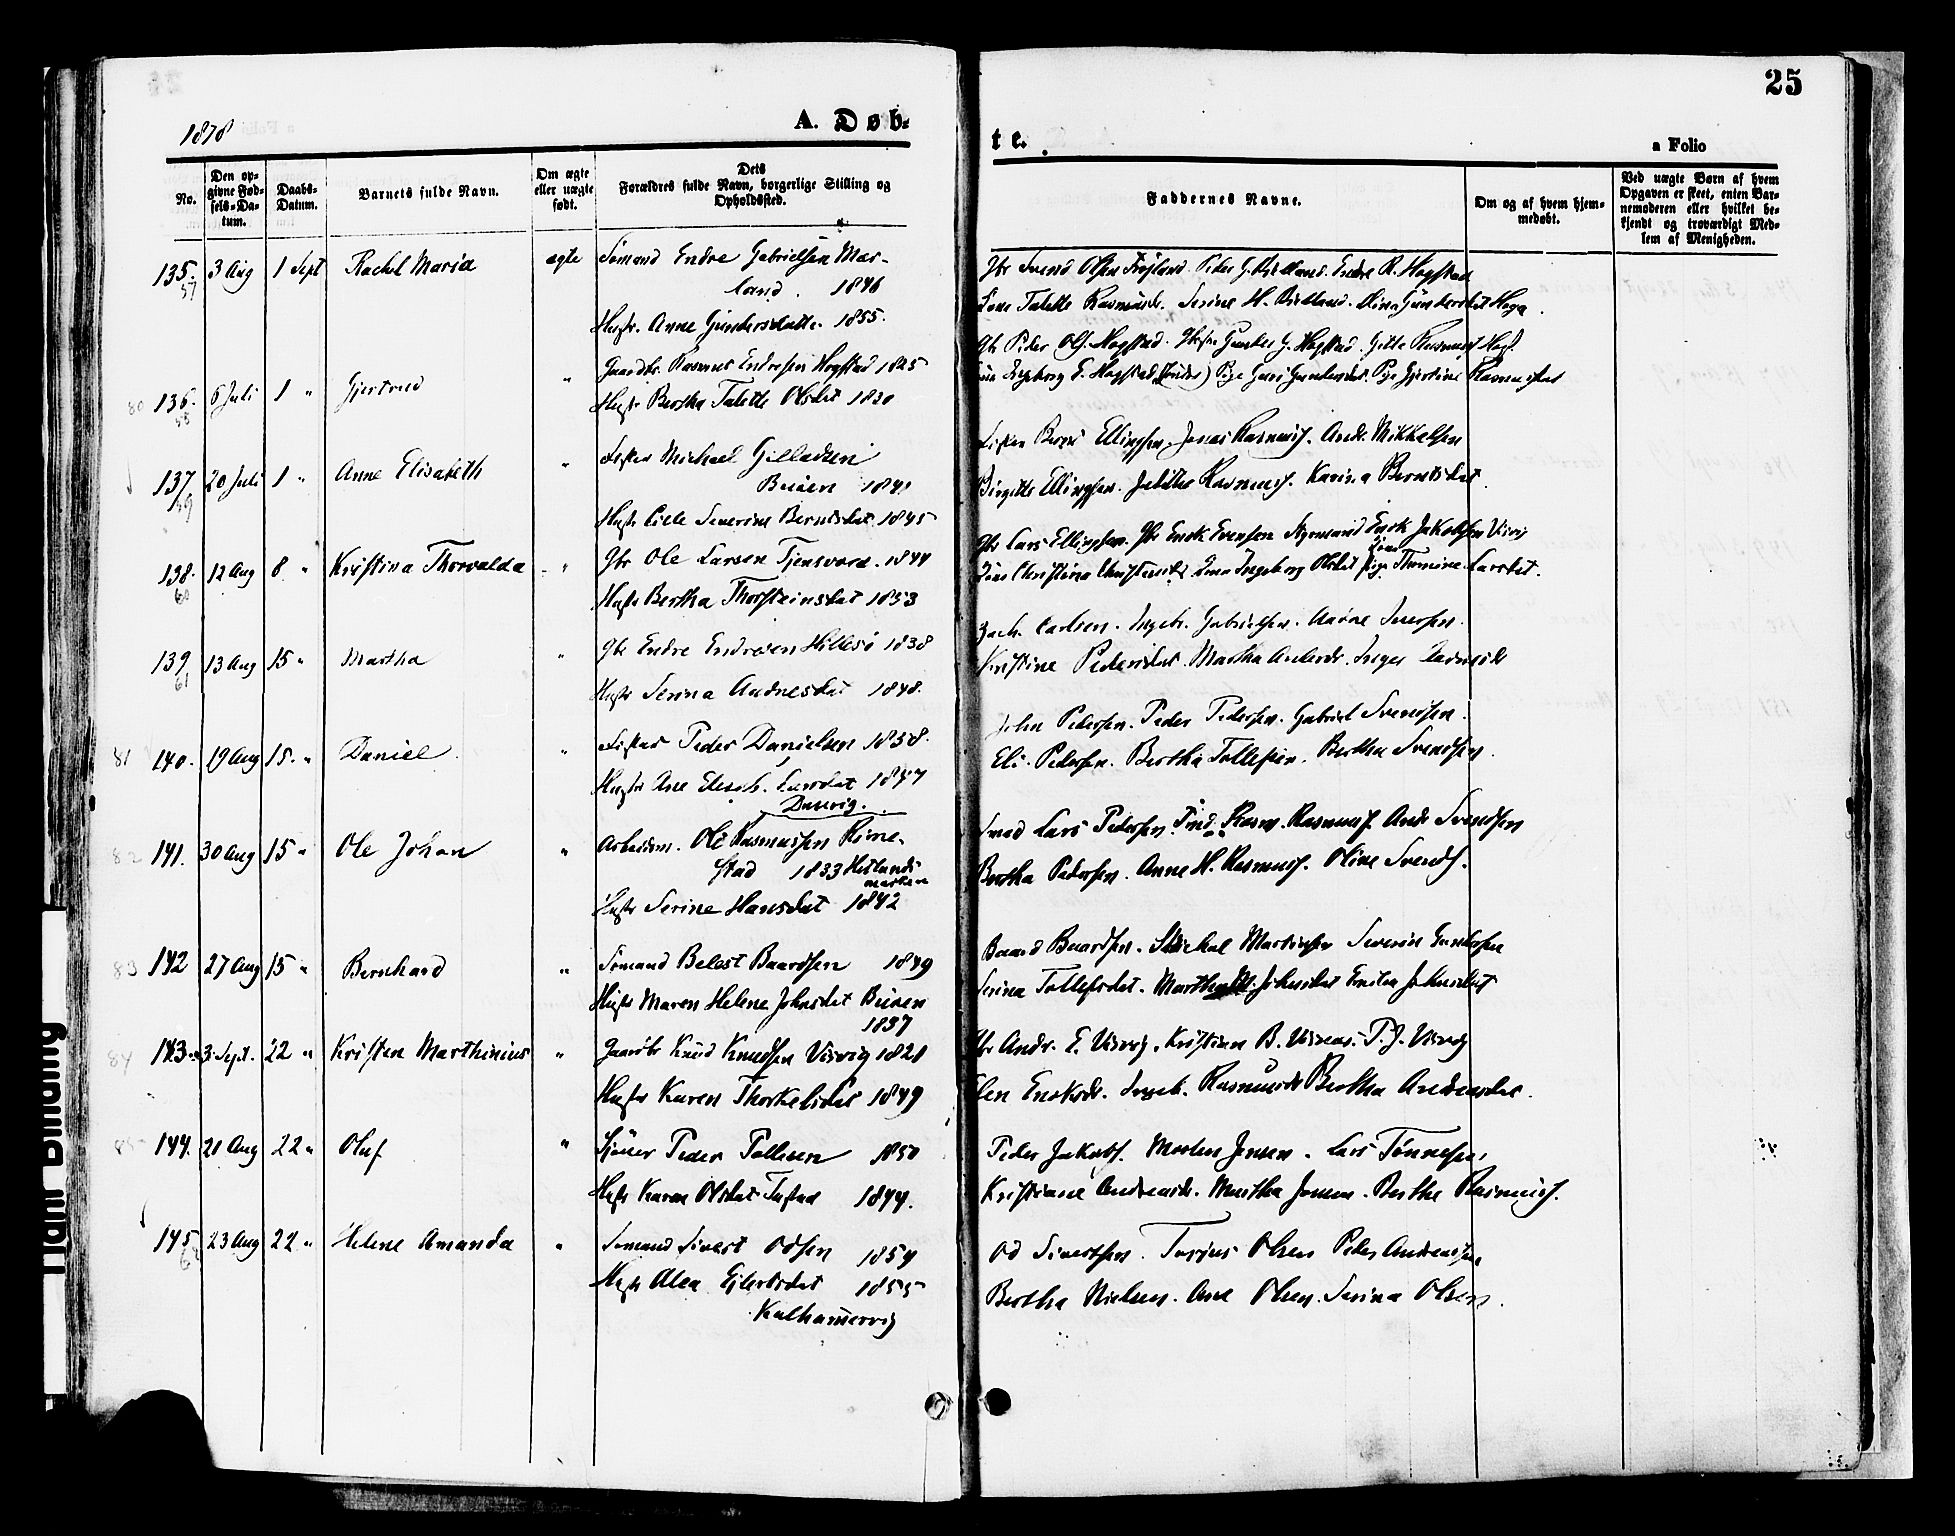 25
1878
A. Døb-
te.
a Folio
No.
Den op-
givne Fød-
sels-Da-
tum.
Daabs-
Datum.
Barnets fulde Navn.
Om ægte
eller uægte
født.
Dets
Forældres fulde Navn, borgerlige Stilling og
Opholdssted.
Faddernes Navne.
Om og af hvem hjem-
medøbt.
Ved uægte Børn af hvem
Opgaven er skeet, enten Bar-
nemoderen eller hvilket be-
kjendt og troværdigt Med-
lem af Menigheden.
135. 3 Aug 1 Sept Rachel Maria ægte Sømand Endre Gabrielsen Mar-
57
land. 1846
Hustr. Anne Gundersdatter 1855.
Gbr Svend Olsen Peder G. Endre R. Hogstad
Talette Serine H. Gundersdat Hoga
80 136. 6 Juli 1 " Gjertrud " Gaardbr. Rasmus Endresen Hogstad 1825
58
Hustr Bertha Talette Olsdat 1830
Gbr Peder Ols. Hogstad. Gunder G. Hogstad. Gitte
Ingeborg E. Hogstad Pige Guri Gundersdat. Pige Gjertine Rasmusdat
137 20 Juli 1 " Anne Elisabeth " Fisker Michael
59
Buøen 1841
Hustr Severine Berntsdat. 1845
Fisker Ellingsen. Jonas Rasmus. Andr. Mikkelsen
Birgitte Ellingsen. Rasmus. Karina Berntsdat.
138. 12 Aug 8 " Kristina Thorvalda " Gbr Ole Larsen Tjensvold. 1844
60
Hustr Bertha Thorsteinsdat 1853
Gbr Lars Ellingsen. Gbr Enok Evensen Styrmand Enok Jakobsen Visvig
Christina Ingeborg Olsdat pige Thomine Larsdat.
139 13 Aug 15 " Martha " Gbr Endre Endresen Hillesø 1838
61
Hustr Serina Andresdat 1848.
Zach. Carlsen. Ingebr. Gabrielsen.
Kristine Pedersdat. Martha Inger
81 140. 19 Aug 15. " Daniel. " Fisker Peder Danielsen 1838.
Hustr Ane Elisab. Larsdat 1847
John Pedersen. Peder Pedersen. Gabriel Svendsen.
Eli. Pedersen. Bertha Tollefsen. Bertha Svendsen.
82 141. 30 Aug 15 " Ole Johan " Arbeidsm. Ole Rasmussen Rime-
stad 1833 Hetlands-
marken
Hustr Serine Hansdat 1842
Smed Lars Pedersen Rasm. Rasmuss. Andr Svendsen
Bertha Pedersen. Anne H. Rasmuss. Oline Svends.
83 142 27 Aug 15 " Bernhard " Sømand Belest Baardsen 1849
Hustr Maren Helene Johnsdat Buøen
1837
Baard Baardsen. Michal Martinsen Severin
Serina Tollefsdat. Martha M. Johnsdat Emilia Johnsdat
84 143 3 Sept. 22 " Kristen Marthinius " Gaardbr Knud Knudsen Visvig 1821
Hustr Karen Thorkelsdat 1849
Gbr Andr. E. Visvig. Kristian B. P. J. Visvig
Elen Enoksdr. Ingeb. Rasmusdr Bertha Andreasdat.
85 144. 21 Aug 22 " Oluf " Peder Tollesen 1850
Hustr Karen Olsdat Tastad 1844.
Peder Jakobs. Morten Jensen. Lars Tønnesen,
Kristiane Andreasdr. Martha Jensen. Berthe Rasmuss.
145 23 Aug 22 " Helene Amanda " Sømand Sivert Odsen 1854
Hustr Alea Ejlertsdat 1855
Kalhammervig
Od Sivertsen. Torjus Olsen Peder Andreasen
Bertha Nielsen. Ane Olsen. Serina Olsen.